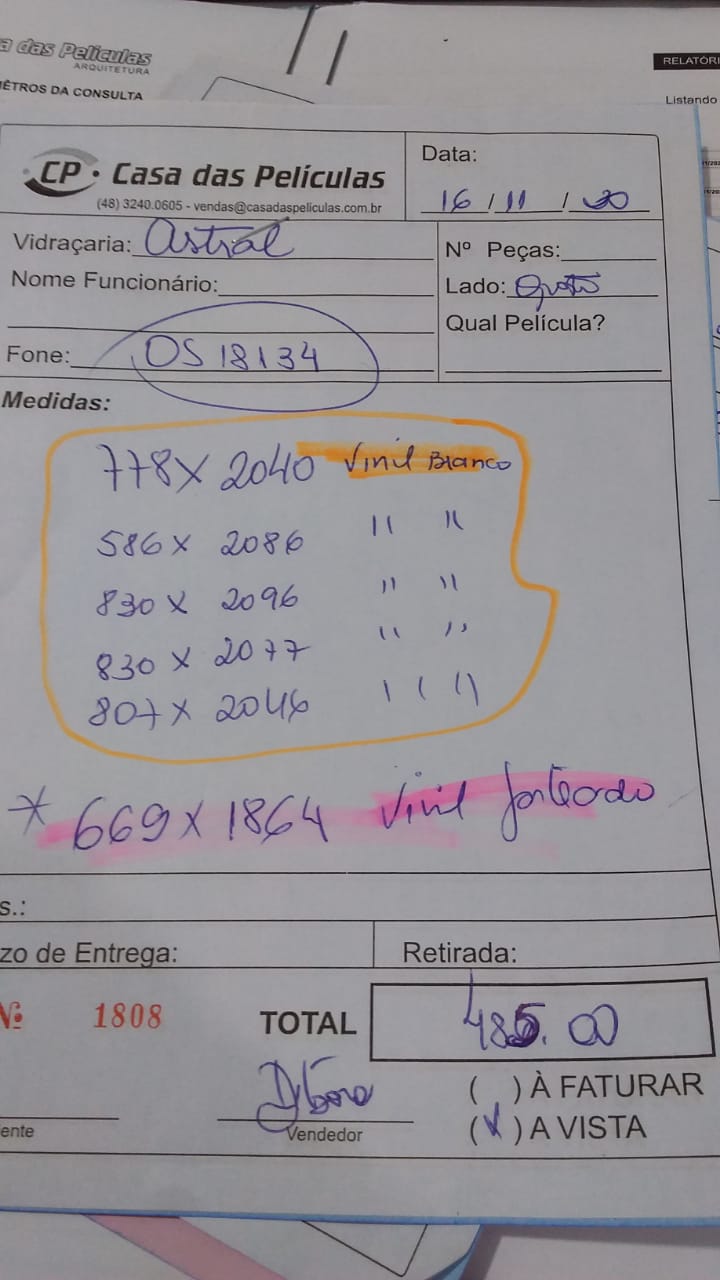 a das Películas
ARQUITETURA
RELATÓRI
ÊTROS DA CONSULTA
Listando
CP • Casa das Películas
(48) 3240.0605 - vendas@casadaspeliculas.com.br
Data:
16 / 11 / 20
Vidraçaria: Astral
Nº Peças:
Nome Funcionário:
Lado:
Qual Película?
Fone: OS 18134
Medidas:
778 X 2040 Vinil Branco
586 X 2086 " "
830 X 2096 " "
830 X 2077 " "
807 X 2046 " "
* 669 X 1864 Vinil Jateado
s.:
zo de Entrega:
Retirada:
Nº 1808
TOTAL 485.00
( ) À FATURAR
ente
Vendedor
(X) A VISTA